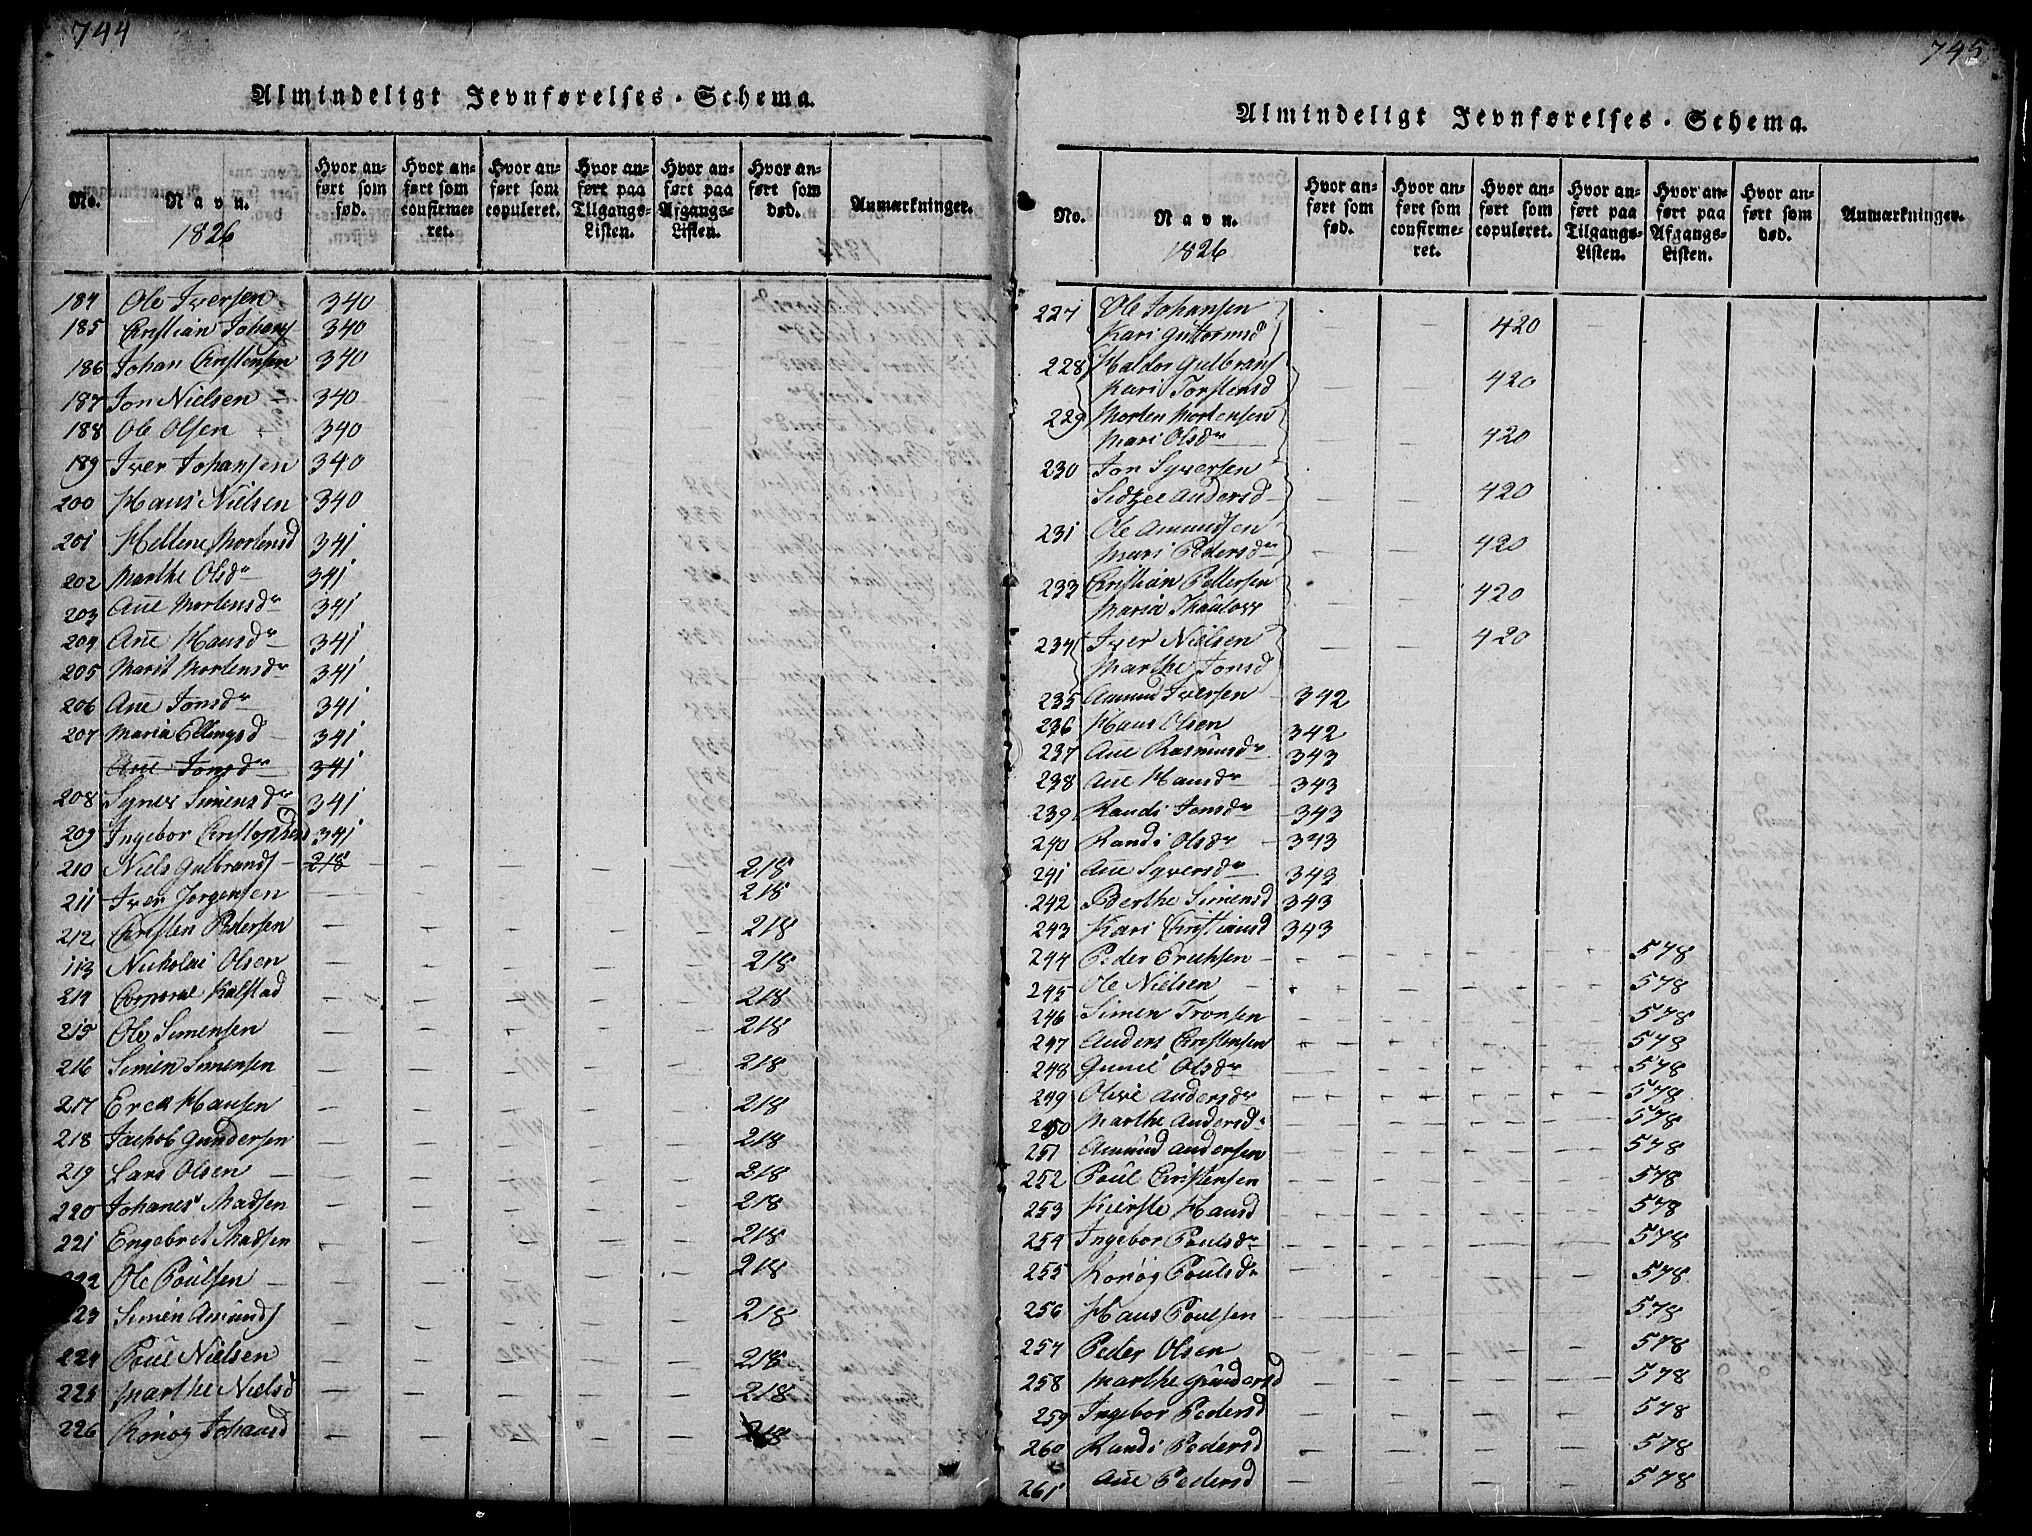 744
Almindeligt Jevnførelses-Schema.
No. Navn. 1826 Hvor anført som fød. Hvor anført som confirmeret. Hvor anført som copuleret. Hvor anført paa Tilgangs-Listen. Hvor anført paa Afgangs-Listen. Hvor anført som død. Anmærkninger.
184 Ole Iversen 340
185 Christian Johans 340
186 Johan Christensen 340
187 Jon Nielsen 340
188 Ole Olsen 340
189 Iver Johansen 340
200 Hans Nielsen 340
201 Hellene Mortensd 341
202 Marthe Olsdr 341
203 Ane Mortensdr 341
204 Ane Hansdr 341
205 Marit Mortensdr 341
206 Ane Jonsdr 341
207 Maria Ellingsd 341
Ane Jonsdr 341
208 Synev Simensdr 341
209 Ingebor Christophersd 341
210 Niels Gulbrands 218 218
211 Iver Jorgensen 218
212 Christen Pedersen 218
113 Nickolai Olsen 218
214 Corporal Kalstad 218
215 Ole Simensen 218
216 Simen Simensen 218
217 Erik Hansen 218
218 Jachob Gundersen 218
219 Lars Olsen 218
220 Johanes Madsen 218
221 Engebret Madsen 218
222 Ole Poulsen 218
223 Simen Amunds 218
224 Poul Nielsen 218
225 Marthe Nielsd 218
226 Rønøg Johansd 218
745
Almindeligt Jevnførelses-Schema.
No. Navn. 1826 Hvor anført som fød. Hvor anført som confirmeret. Hvor anført som copuleret. Hvor anført paa Tilgangs-Listen. Hvor anført paa Afgangs-Listen. Hvor anført som død. Anmærkninger.
227 Ole Johansen
Kari Guttormsd 420
228 Haldor Gulbrans
Kari Torstensd 420
229 Morten Mortensen
Mari Olsdr 420
230 Jon Syversen
Sidzee Andersd 420
231 Ole Amundsen
Mari Pedersdr 420
233 Christian Pettersen
Maria Thoulow 420
234 Iver Nielsen 420
Marthe Jonsd
235 Amund Iversen 342
236 Hans Olsen 342
237 Ane Rasmusdr 343
238 Ane Hansdr 343
239 Randi Jonsdr 343
240 Randi Olsdr 343
241 Ane Syversdr 343
242 Berthe Simensd 343
243 Kari Christiansd 343
244 Peder Erichsen 578
245 Ole Nielsen 578
246 Simen Tronsen 578
247 Anders Christensen 578
248 Gunil Olsdr 578
249 Olive Andersdr 578
250 Marthe Andersdr 578
251 Amund Andersen 578
252 Poul Christensen 578
253 Kierste Hansd 578
254 Ingebor Poulsdr 578
255 Rønøg Poulsdr 578
256 Hans Poulsen 578
257 Peder Olsen 578
258 Marthe Gundersd 578
259 Ingebor Pedersd 578
260 Randi Pedersd 578
261 Ane Pedersd 578